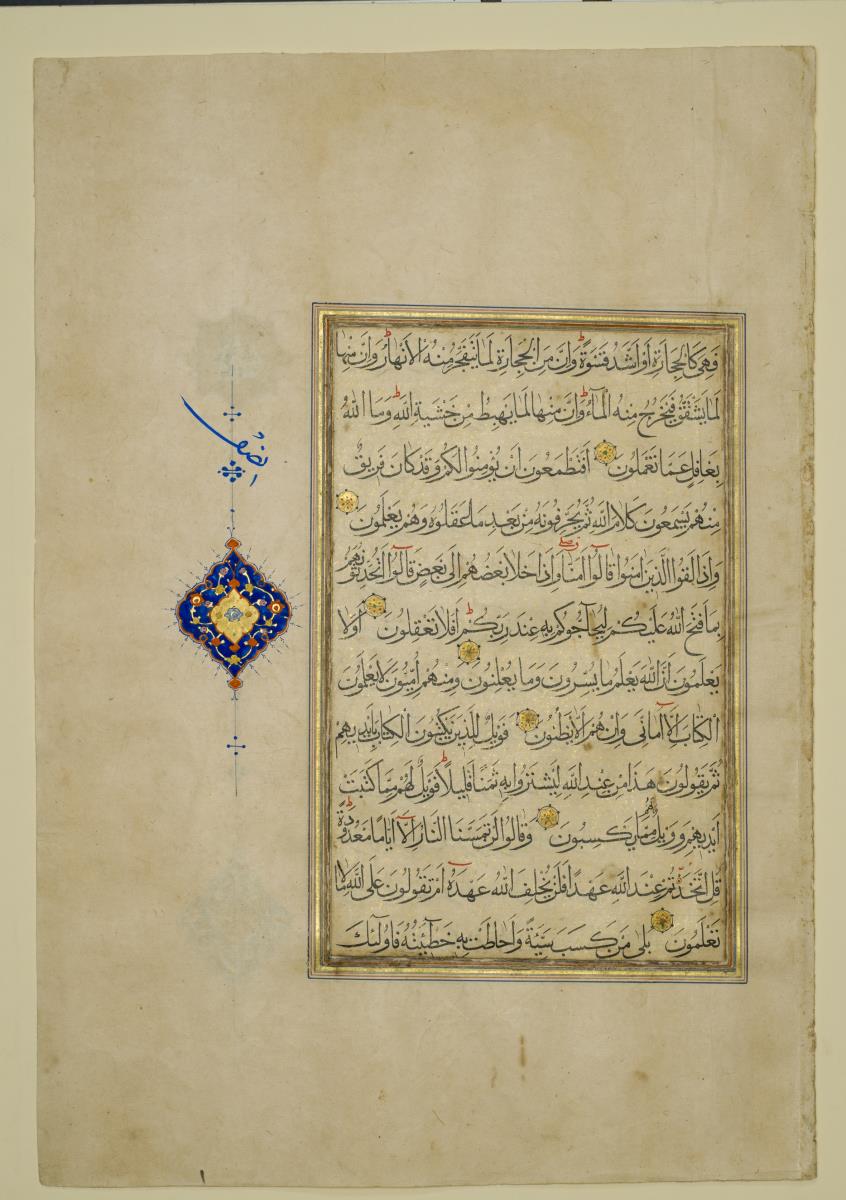 فَهِيَ كَالْحِجَارَةِ أَوْ أَشَدُّ قَسْوَةً وَإِنَّ مِنَ الْحِجَارَةِ لَمَا يَتَفَجَّرُ مِنْهُ الْأَنْهَارُ وَإِنَّ مِنْهَا
لَمَا يَشَّقَّقُ فَيَخْرُجُ مِنْهُ الْمَآءُ وَإِنَّ مِنْهَا لَمَا يَهْبِطُ مِنْ خَشْيَةِ اللَّهِ وَمَا اللَّهُ
بِغَافِلٍ عَمَّا تَعْمَلُونَ أَفَتَطْمَعُونَ أَنْ يُؤْمِنُوا لَكُمْ وَقَدْ كَانَ فَرِيقٌ
مِنْهُمْ يَسْمَعُونَ كَلَامَ اللَّهِ ثُمَّ يُحَرِّفُونَهُ مِنْ بَعْدِ مَا عَقَلُوهُ وَهُمْ يَعْلَمُونَ
وَإِذَا لَقُوا الَّذِينَ اٰمَنُوا قَالُوا اٰمَنَّا وَإِذَا خَلَا بَعْضُهُمْ إِلَى بَعْضٍ قَالُوا أَتُحَدِّثُونَهُمْ
بِمَا فَتَحَ اللَّهُ عَلَيْكُمْ لِيُحَآجُّوكُمْ بِهِ عِنْدَ رَبِّكُمْ أَفَلَا تَعْقِلُونَ أَوَلَا
يَعْلَمُونَ أَنَّ اللَّهَ يَعْلَمُ مَا يُسِرُّونَ وَمَا يُعْلِنُونَ وَمِنْهُمْ أُمِّيُّونَ لَا يَعْلَمُونَ
الْكِتَابَ إِلَّا أَمَانِيَّ وَإِنْ هُمْ إِلَّا يَظُنُّونَ فَوَيْلٌ لِلَّذِينَ يَكْتُبُونَ الْكِتَابَ بِأَيْدِيهِمْ
ثُمَّ يَقُولُونَ هٰذَا مِنْ عِنْدِ اللَّهِ لِيَشْتَرُوا بِهِ ثَمَنًا قَلِيلًا فَوَيْلٌ لَهُمْ مِمَّا كَتَبَتْ
أَيْدِيهِمْ وَوَيْلٌ لَهُمْ مِمَّا يَكْسِبُونَ وَقَالُوا لَنْ تَمَسَّنَا النَّارُ إِلَّآ أَيَّامًا مَعْدُودَةً
قُلْ أَتَّخَذْتُمْ عِنْدَ اللَّهِ عَهْدًا فَلَنْ يُخْلِفَ اللَّهُ عَهْدَهُ أَمْ تَقُولُونَ عَلَى اللَّهِ مَا لَا
تَعْلَمُونَ بَلَى مَنْ كَسَبَ سَيِّئَةً وَأَحَاطَتْ بِهِ خَطِٓيئَتُهُ فَأُولٰٓئِكَ
نصف